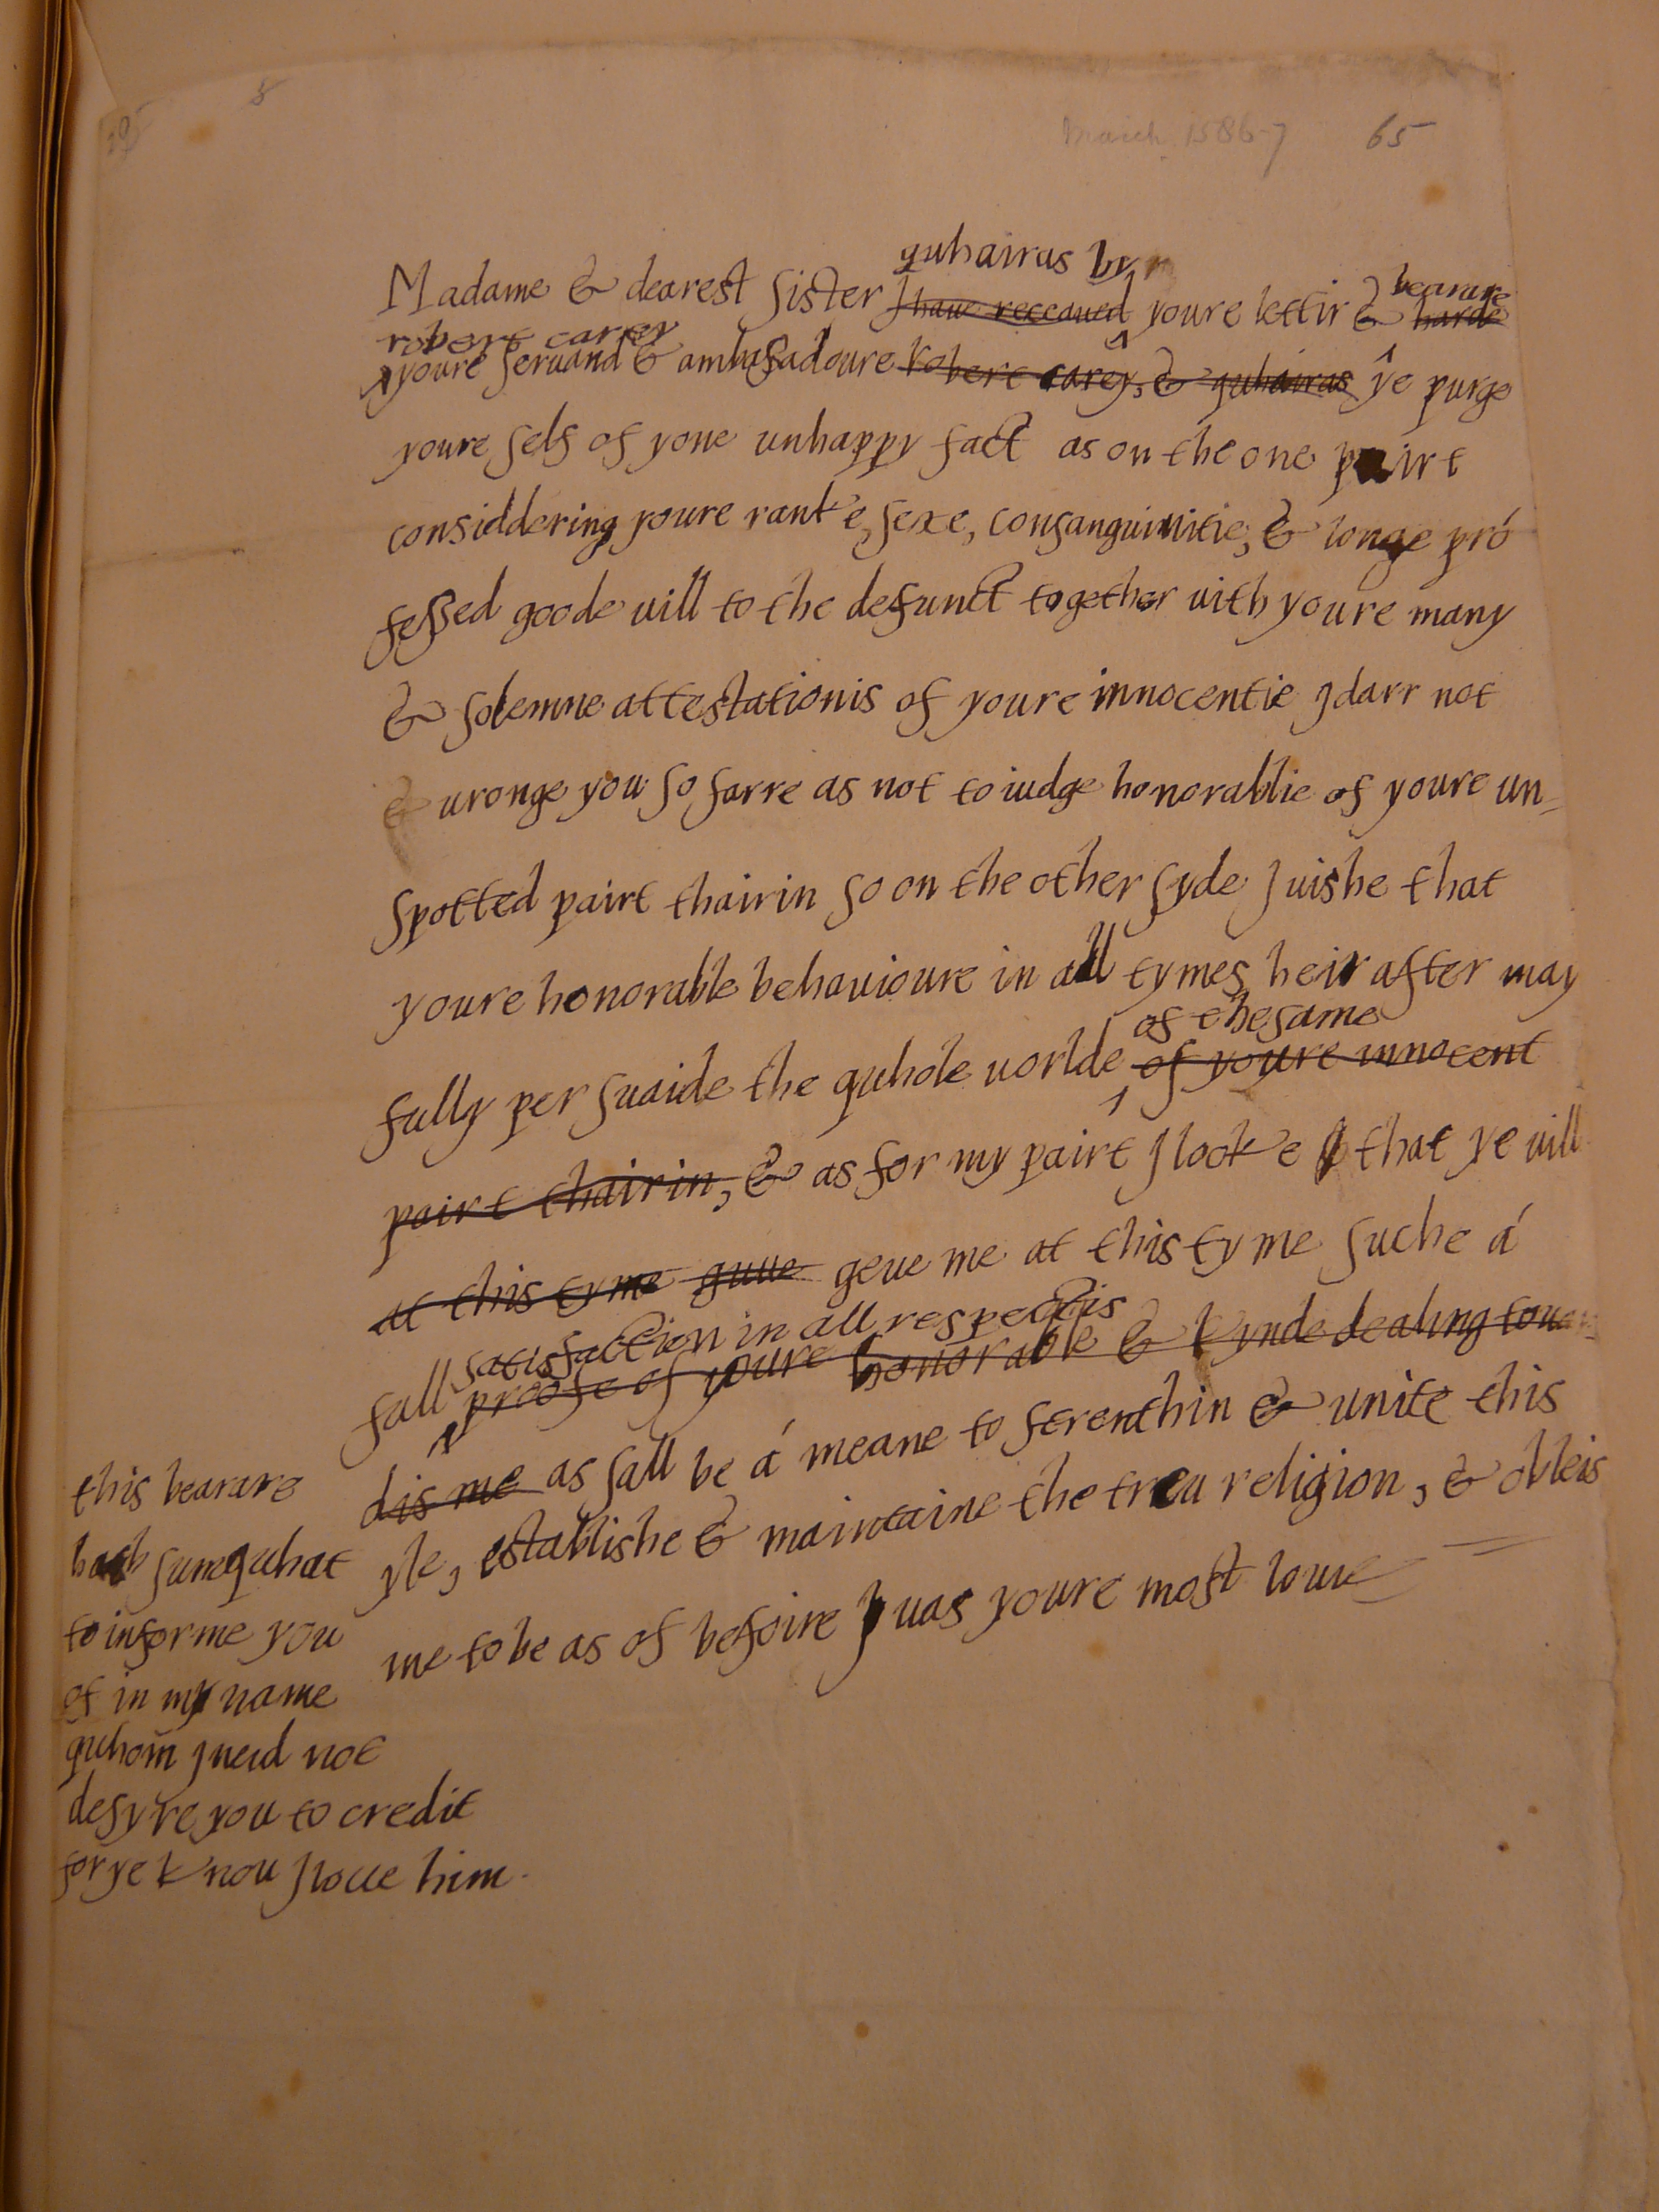 8
March 1586-7 65
quhairas by
Madame & dearest sister I haue receaued youre lettir & harde
bearare
robert carey
youre seruand & ambassadoure Robert carey, & quhairas ye purge
youre self of yone unhappy fact as on the one pairt
considdering youre ranke, sexe, consanguinitie, & longe pro
fessed goode uill to the defunct together uith youre many
& solemne attestationis of youre innocentie I darr not
& uronge you so farre as not to iudge honorablie of youre un-
spotted pairt thairin so on the other syde I uishe that
youre honorable behauioure in all tymes heirafter may
of the same
fully persuaide the quhole uorlde of youre innocent
pairt thairin, & as for my pairt I looke that ye uill
at this tyme geue me at this tyme suche á
satisfaction in all respectis
full proofe of youre honorable & kynde dealing touar
dis me as sall be á meane to strenthin & unite this
yle, establishe & maintaine the treu religion, & obleis
me to be as of befoire I uas youre most loue
this bearare
hath sumquhat
to informe you
of in my name
quhom I neid not
desyre you to credit
for ye knou I loue him.